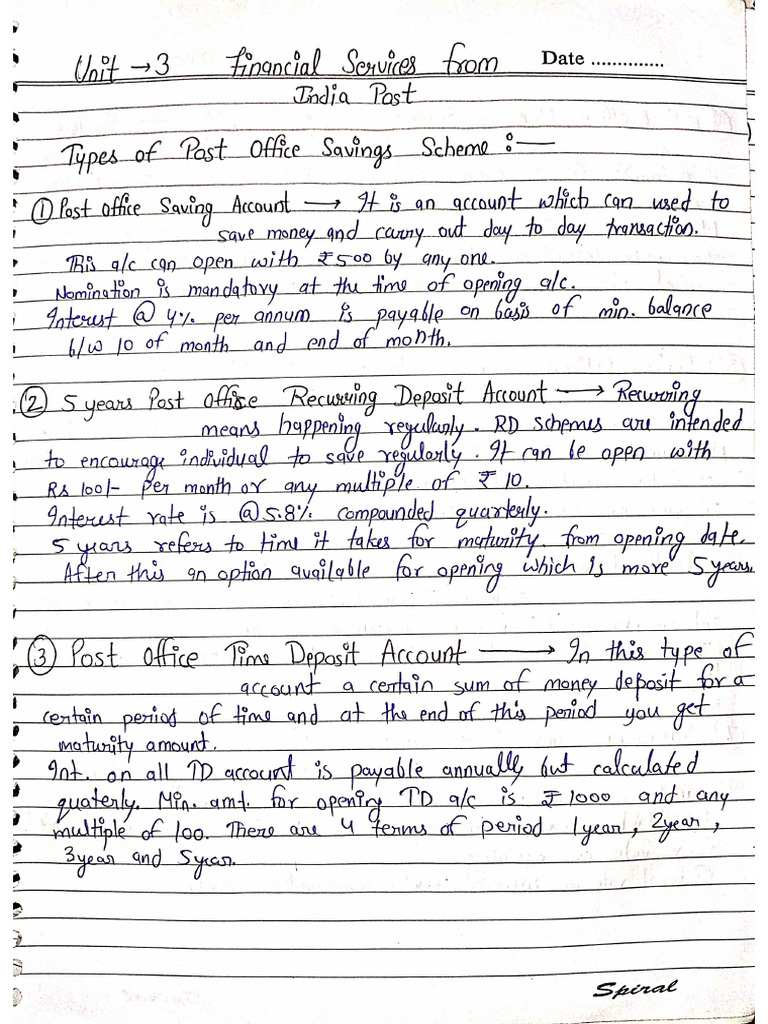 Unit → 3 Financial Services from Date ..............
India Post
Types of Post Office Savings Scheme :—
① Post office Saving Account → It is an account which can used to
save money and carry out day to day transaction.
This a/c can open with ₹500 by any one.
Nomination is mandatory at the time of opening a/c.
Interest @ 4% per annum is payable on basis of min. balance
b/w 10 of month and end of month.
② 5 years Post Office Recurring Deposit Account → Recurring
means happening regularly. RD schemes are intended
to encourage individual to save regularly. It can be open with
Rs 100/- per month or any multiple of ₹ 10.
Interest rate is @ 5.8% compounded quarterly.
5 years refers to time it takes for maturity from opening date.
After this an option available for opening which is more 5 years.
③ Post Office Time Deposit Account → In this type of
account a certain sum of money deposit for a
certain period of time and at the end of this period you get
maturity amount.
Int. on all TD account is payable annually but calculated
quaterly. Min. amt. for opening TD a/c is ₹ 1000 and any
multiple of 100. There are 4 terms of period 1year, 2year,
3year and 5year.
Spiral